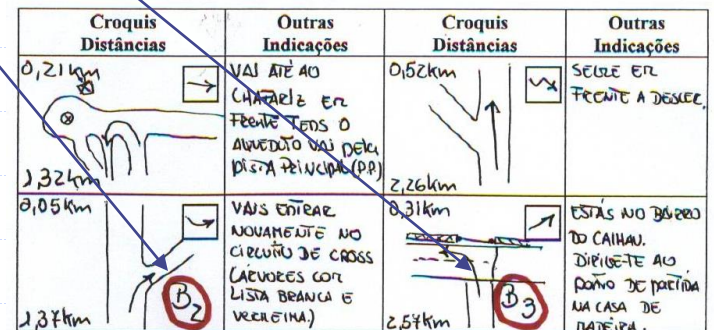 Croquis
Distâncias
Outras
Indicações
Croquis
Distâncias
Outras
Indicações
0,21 km
1,32 km
VAI ATÉ AO
CHAFARIZ EM
FRENTE TENS O
AQUEDUTO VAI PELA
PISTA PRINCIPAL (P.P.)
0,52 km
2,26 km
SEGUE EM
FRENTE A DESCER.
0,05 km
1,37 km
B2
VAIS ENTRAR
NOVAMENTE NO
CIRCUITO DE CROSS
(ÁRVORES COM
LISTA BRANCA E
VERMELHA.)
0,31 km
2,57 km
B3
ESTÁS NO BAIRRO
DO CALHAU.
DIRIGE-TE AO
PONTO DE PARTIDA
NA CASA DE
MADEIRA.